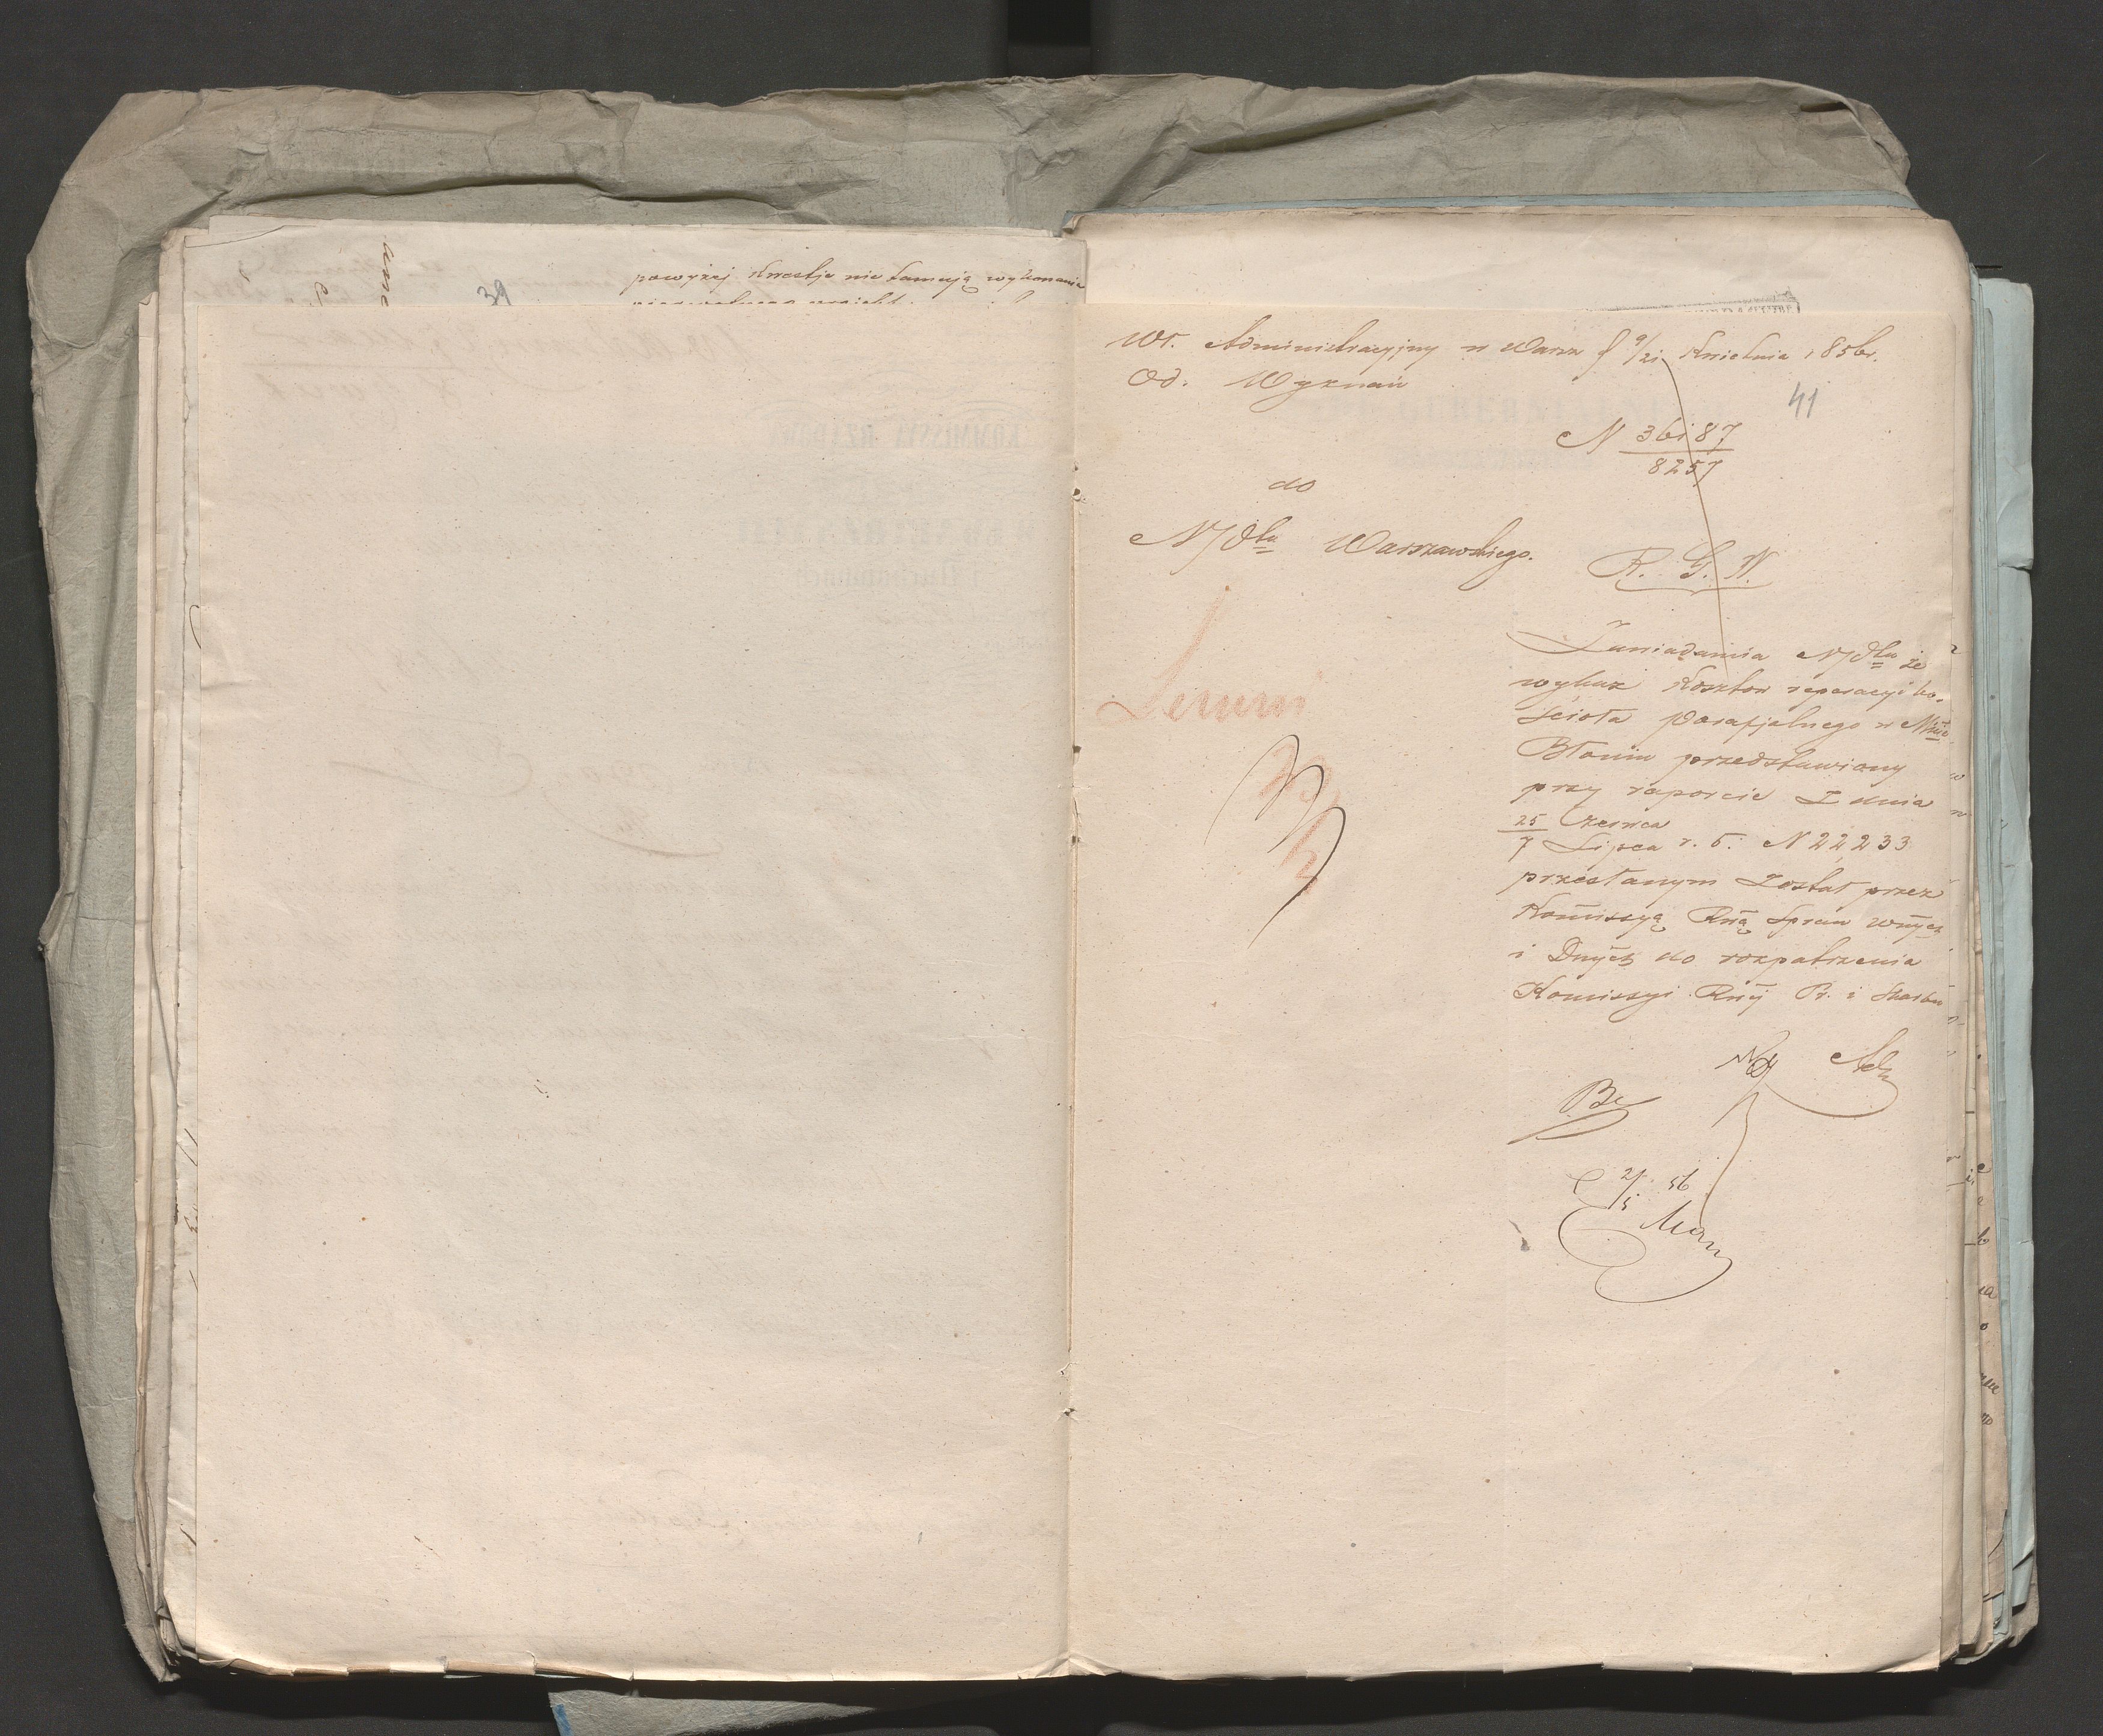 39
powyżej kwestje nie tamują wykonanie
Wł. Administracyjny w Warsz d 9/21 Kwietnia 1856 r.
Od. Wyznań
41
N 36187
8257
do
N/dla Warszawskiego.
R. G. W.
Zawiadamia N/dla że
wykaz Kosztow reperacyi ko-
ścioła parafjalnego w Mście
Błoniu przedstawiony
przy raporcie z dnia
25 Czerwca
7 Lipca r. b. N 22,233
przesłanym został przez
Komissyą Rną Spraw Wnych
i Dnych do rozpatrzenia
Komissyi Rnej Pr. i Skarbu
2/5 56